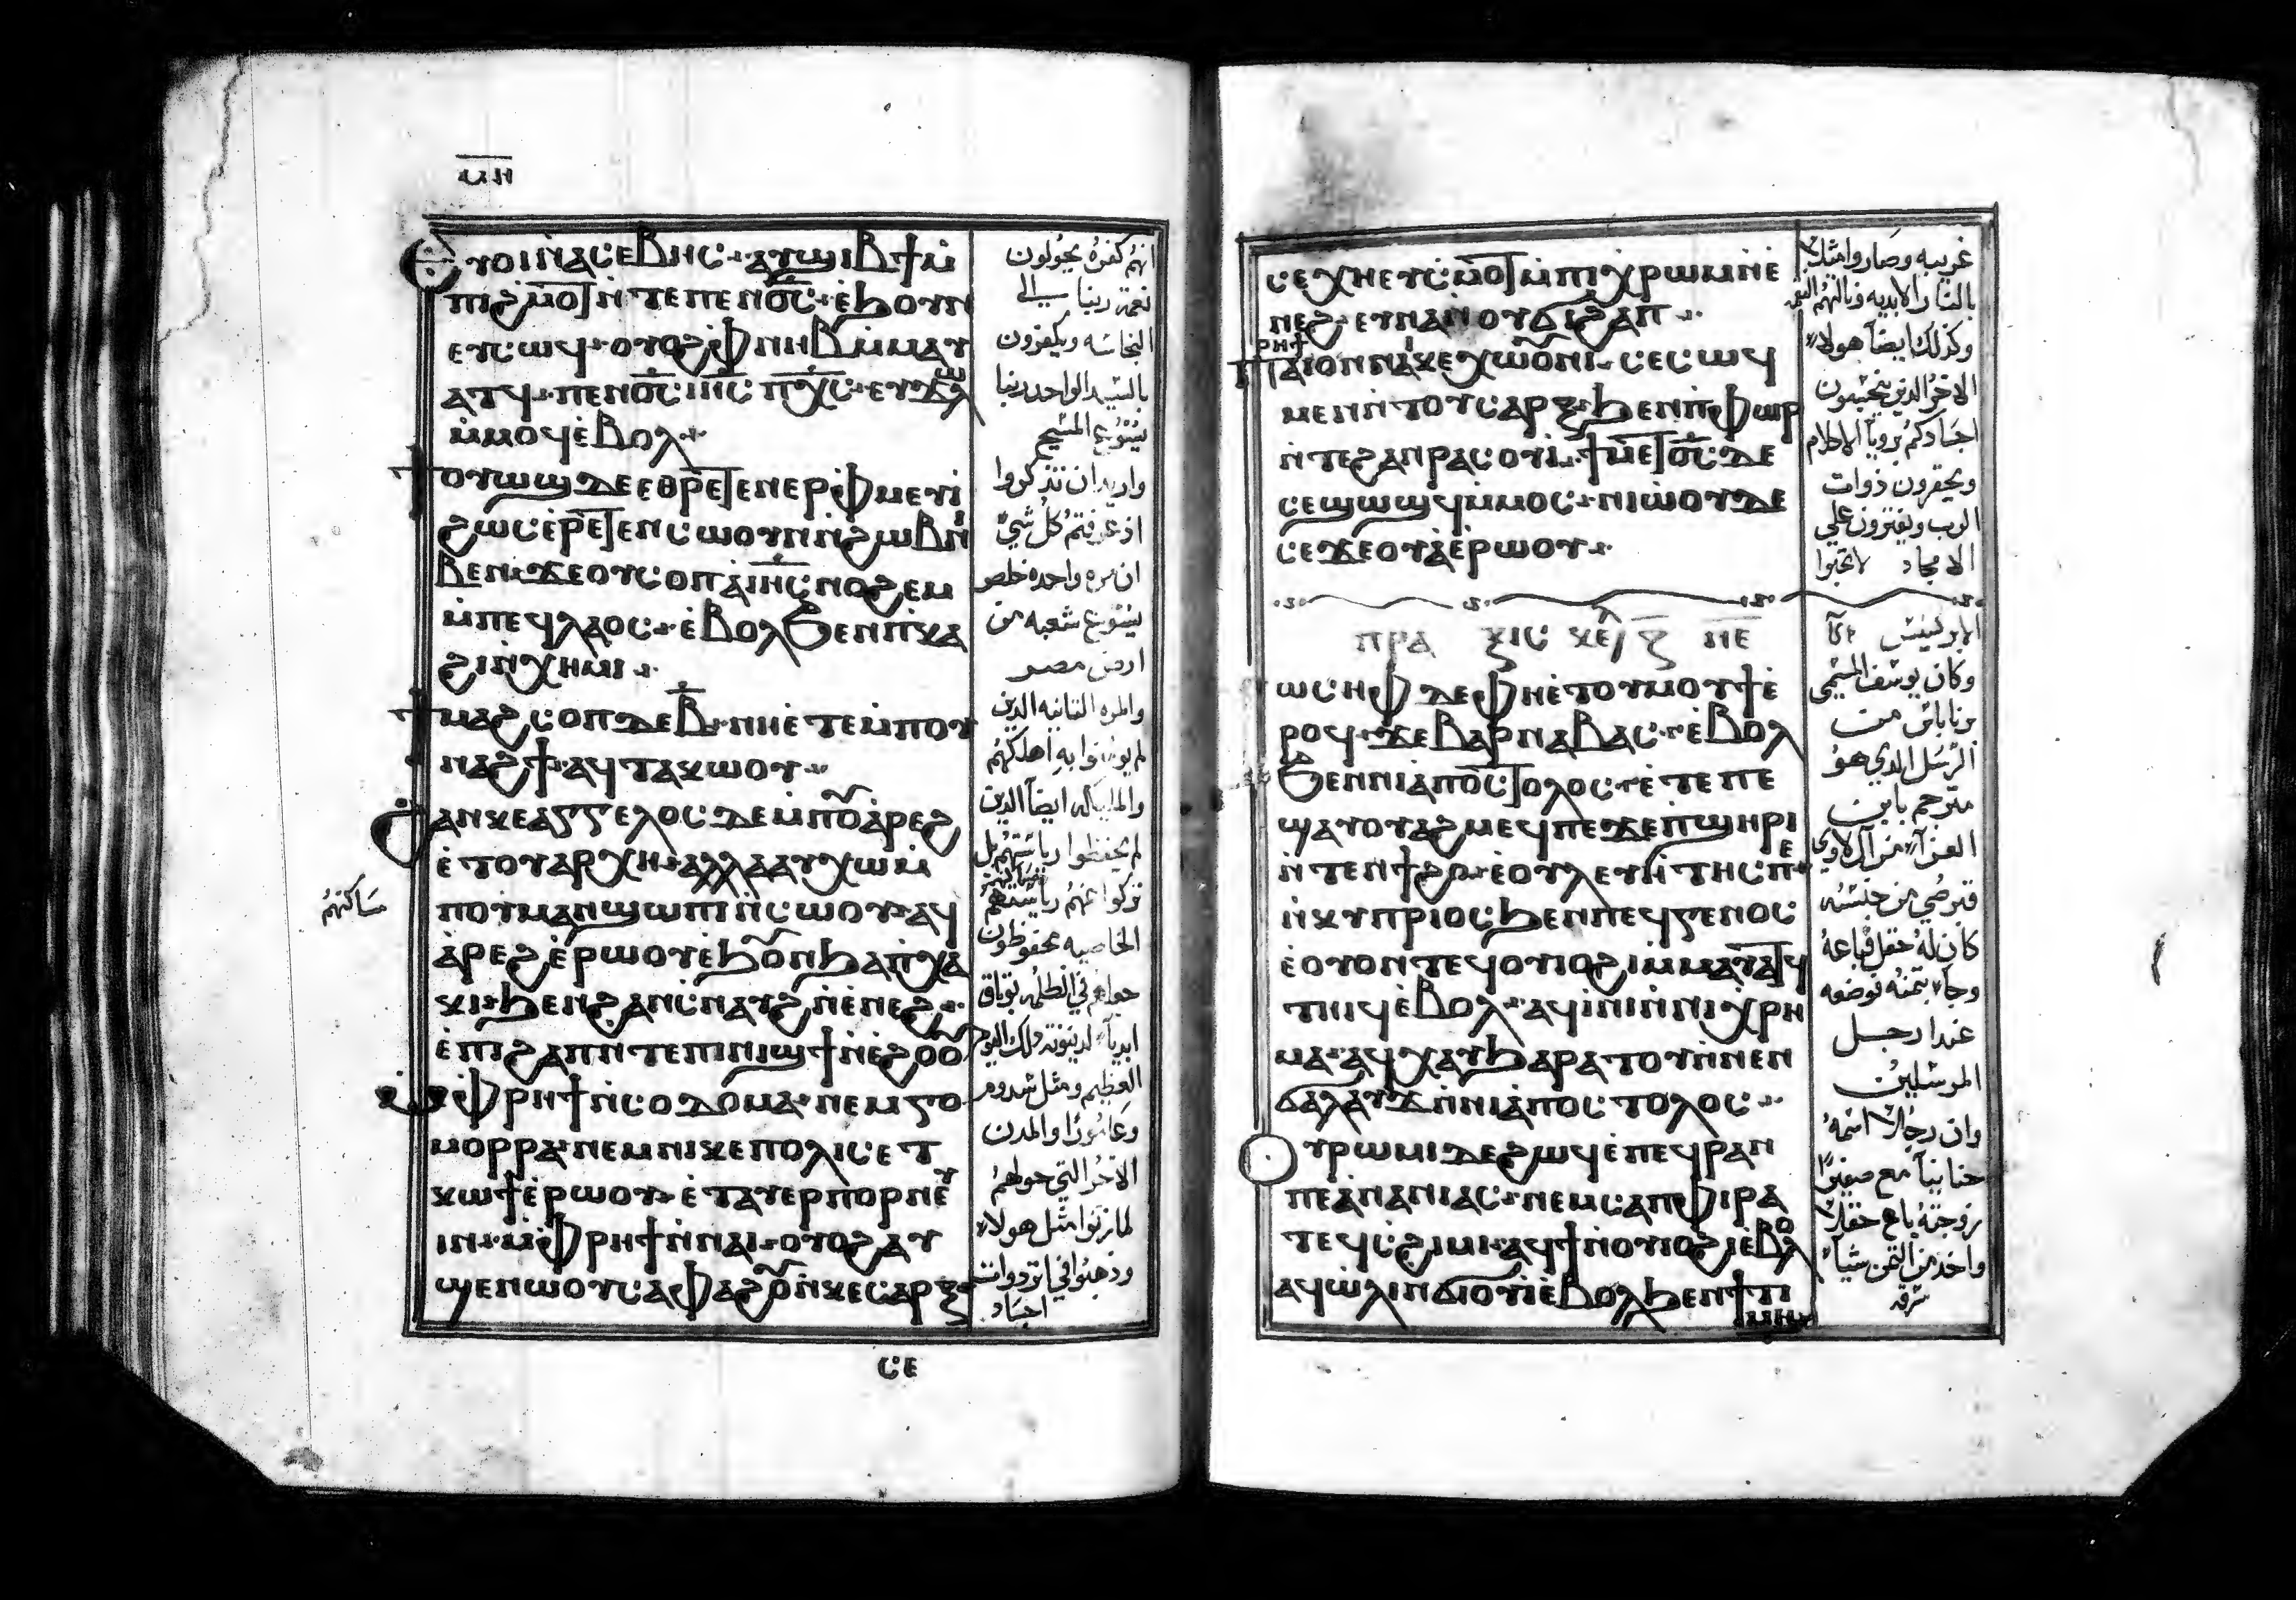 ⲙⲏ
ⲉⲩⲟⲓ ⲛ̀ⲁⲥⲉⲃⲏⲥ ⲁⲩϣⲓⲃϯ ⲙ̀
ⲡⲓϩⲙⲟⲧ ⲛ̀ⲧⲉ ⲡⲉⲛⲟ̅ⲥ̅ ⲉ̀ϧⲟⲩⲛ
ⲉⲩⲥⲱϥ ⲟⲩⲟϩ ⲫⲛⲏⲃ ⲙ̀ⲙⲁⲩ
ⲁⲧϥ ⲡⲉⲛⲟ̅ⲥ̅ ⲓⲏ̅ⲥ̅ ⲡⲭ̅ⲥ̅ ⲉⲩϫⲱⲗ
ⲙ̀ⲙⲟϥ ⲉ̀ⲃⲟⲗ
ϯⲟⲩⲱϣ ⲇⲉ ⲉⲑⲣⲉⲧⲉⲛⲉⲣⲫⲙⲉⲩⲓ̀
ϩⲱⲥ ⲉ̀ⲣⲉⲧⲉⲛⲥⲱⲟⲩⲛ ⲛ̀ϩⲱⲃ ⲛⲓ
ⲃⲉⲛ ϫⲉ ⲟⲩⲥⲟⲡ ⲁ̀ ⲓⲏ̅ⲥ̅ ⲛⲟϩⲉⲙ
ⲙ̀ⲡⲉϥⲗⲁⲟⲥ ⲉ̀ⲃⲟⲗ ϧⲉⲛ ⲡⲕⲁ
ϩⲓ ⲛ̀ⲭⲏⲙⲓ
ϯⲙⲁϩⲥⲟⲡ ⲇⲉ ⲃ̅ ⲛⲏ ⲉ̀ⲧⲉ ⲙ̀ⲡⲟⲩ
ⲛⲁϩϯ ⲁϥⲧⲁⲕⲱⲟⲩ
ϩⲁⲛⲕⲉⲁⲅⲅⲉⲗⲟⲥ ⲇⲉ ⲙ̀ⲡⲟⲩⲁ̀ⲣⲉϩ
ⲉ̀ⲧⲟⲩⲁⲣⲭⲏ ⲁⲗⲗⲁ ⲁⲩⲭⲱ ⲙ̀
ⲡⲟⲩⲙⲁⲛϣⲱⲡⲓ ⲛ̀ⲥⲱⲟⲩ ⲁϥ
ⲁ̀ⲣⲉϩ ⲉ̀ⲣⲱⲟⲩ ⲉ̀ϧⲟⲩⲛ ϧⲁ ⲡⲭⲁ
ⲕⲓ ϧⲉⲛ ϩⲁⲛⲥⲛⲁⲩϩ ⲛ̀ⲉ̀ⲛⲉϩ
ⲉ̀ⲡⲓϩⲁⲡ ⲛ̀ⲧⲉ ⲡⲓⲛⲓϣϯ ⲛ̀ⲉ̀ϩⲟⲟⲩ
ⲙ̀ⲫⲣⲏϯ ⲛ̀ⲥⲟⲇⲟⲙⲁ ⲛⲉⲙ ⲅⲟ
ⲙⲟⲣⲣⲁ ⲛⲉⲙ ⲛⲓⲕⲉⲡⲟⲗⲓⲥ ⲉⲧ
ⲕⲱϯ ⲉ̀ⲣⲱⲟⲩ ⲉ̀ⲧⲁⲩⲉⲣⲡⲟⲣⲛⲉⲩ
ⲓⲛ ⲙ̀ⲫⲣⲏϯ ⲛ̀ⲛⲁⲓ ⲟⲩⲟϩ ⲁⲩ
ϣⲉⲛⲱⲟⲩ ⲥⲁⲫⲁϩⲟⲩ ⲛ̀ⲕⲉⲥⲁⲣⲝ
ⲥⲉ
انهم كفره يحولون
نعمة ربنا الي
النجاسه ويكفرون
بالسيد الواحد ربنا
يسوع المسيح
واريد ان تذكروا
اذ عرفتم كل شي
ان مره واحده خلص
يسوع شعبه من
ارض مصر
والمره الثانيه الذين
لم يومنوا به اهلكهم
والملايكه ايضا الذين
لم يحفظوا رياستهم بل
تركوا عنهم
مساكنهم
الخاصيه محفوظون
ابديا لدينونة ذلك اليوم
العظيم ومثل سدوم
وعامورا والمدن
الاخر التي حولهم
لما زنوا مثل هولاء
وذهبوا في اثر ذوات
اجساد
ⲥⲉⲭⲏ ⲉⲩⲥⲙⲟⲧ ⲙ̀ⲡⲓⲭⲣⲱⲙ ⲛ̀ⲉ̀
ⲛⲉϩ ⲉⲩⲛⲁⲛⲟⲩϭⲓϩⲁⲡ
ⲡⲁⲓⲣⲏϯ ⲟⲛ ⲛⲁⲓⲕⲉⲭⲱⲟⲩⲛⲓ ⲥⲉⲥⲱϥ
ⲙⲉⲛ ⲛ̀ⲧⲟⲩⲥⲁⲣⲝ ϧⲉⲛ ⲡ̀ⲫⲱⲣ
ⲛ̀ⲧⲉ ϩⲁⲛⲣⲁⲥⲟⲩⲓ ϯⲙⲉⲧⲟ̅ⲥ̅ ⲇⲉ
ⲥⲉϣⲱϣϥ ⲙ̀ⲙⲟⲥ ⲛⲓⲱ̀ⲟⲩ ⲇⲉ
ⲥⲉϫⲉⲟⲩⲁ̀ ⲉ̀ⲣⲱⲟⲩ
ⲡⲣⲁⲝⲓⲥ ⲕⲉ̅ⲗ ⲍ̅ ⲛⲉ̅
ⲓⲱⲥⲏⲫ ⲇⲉ ⲫⲏ ⲉ̀ⲧⲟⲩⲙⲟⲩϯ ⲉ̀
ⲣⲟϥ ϫⲉ ⲃⲁⲣⲛⲁⲃⲁⲥ ⲉ̀ⲃⲟⲗ
ϧⲉⲛ ⲛⲓⲁ̀ⲡⲟⲥⲧⲟⲗⲟⲥ ⲉ̀ⲧⲉ ⲡⲉ
ϣⲁⲩⲟⲩⲁϩⲙⲉϥ ⲡⲉ ϫⲉ ⲡϣⲏⲣⲓ
ⲛ̀ⲧⲉⲛϯϩⲟ ⲉ̀ⲟⲩⲗⲉⲩⲓ̀ⲧⲏⲥ ⲡⲉ
ⲛ̀ⲕⲩⲡⲣⲓⲟⲥ ϧⲉⲛ ⲡⲉϥⲅⲉⲛⲟⲥ
ⲉ̀ⲟⲩⲟⲛⲧⲉϥ ⲟⲩⲓⲟϩⲓ ⲙ̀ⲙⲁⲩ ⲁϥ
ⲧⲏⲓϥ ⲉ̀ⲃⲟⲗ ⲁϥⲓ̀ⲛⲓ ⲛ̀ⲛⲓⲭⲣⲏ
ⲙⲁ ⲁϥⲭⲁⲩ ϧⲁⲣⲁⲧⲟⲩ ⲛ̀ⲛⲉⲛ
ϭⲁⲗⲁⲩϫ ⲛ̀ⲛⲓⲁ̀ⲡⲟⲥⲧⲟⲗⲟⲥ
ⲟⲩⲣⲱⲙⲓ ⲇⲉ ϩⲱϥ ⲉ̀ⲡⲉϥⲣⲁⲛ
ⲡⲉ ⲁ̀ⲛⲁⲛⲓⲁⲥ ⲛⲉⲙ ⲥⲁⲡⲫⲓⲣⲁ
ⲧⲉϥⲥϩⲓⲙⲓ ⲁϥϯ ⲛ̀ⲟⲩⲓⲟϩⲓ ⲉ̀ⲃⲟⲗ
ⲁϥⲱ̀ⲗⲓ ⲛ̀ϭⲓⲟⲩⲓ̀ ⲉ̀ⲃⲟⲗ ϧⲉⲛ ϯϯ
ⲙⲏ
غريبه وصاروا مثلا
بالنار الابديه ونالهم النقمه
وكذلك ايضا هولاء
الاخر الذين ينجسون
اجسادكم برويا الاحلام
ويحقرون ذوات
الرب ويفترون علي
الامجاد لا تحبوا
الابركسيس
وكان يوسف المسمي
برنابا من
الرسل الذي هو
مترجم بابن
العزاء من آل لاوي
قبرصي من جنسه
كان له حقل فباعه
وجاء بثمنه فوضعه
عند ارجل
المرسلين
وان رجلا اسمه
حنانيا مع صفيرا
زوجته باع حقلا
واخذ من الثمن شيا
سرقه